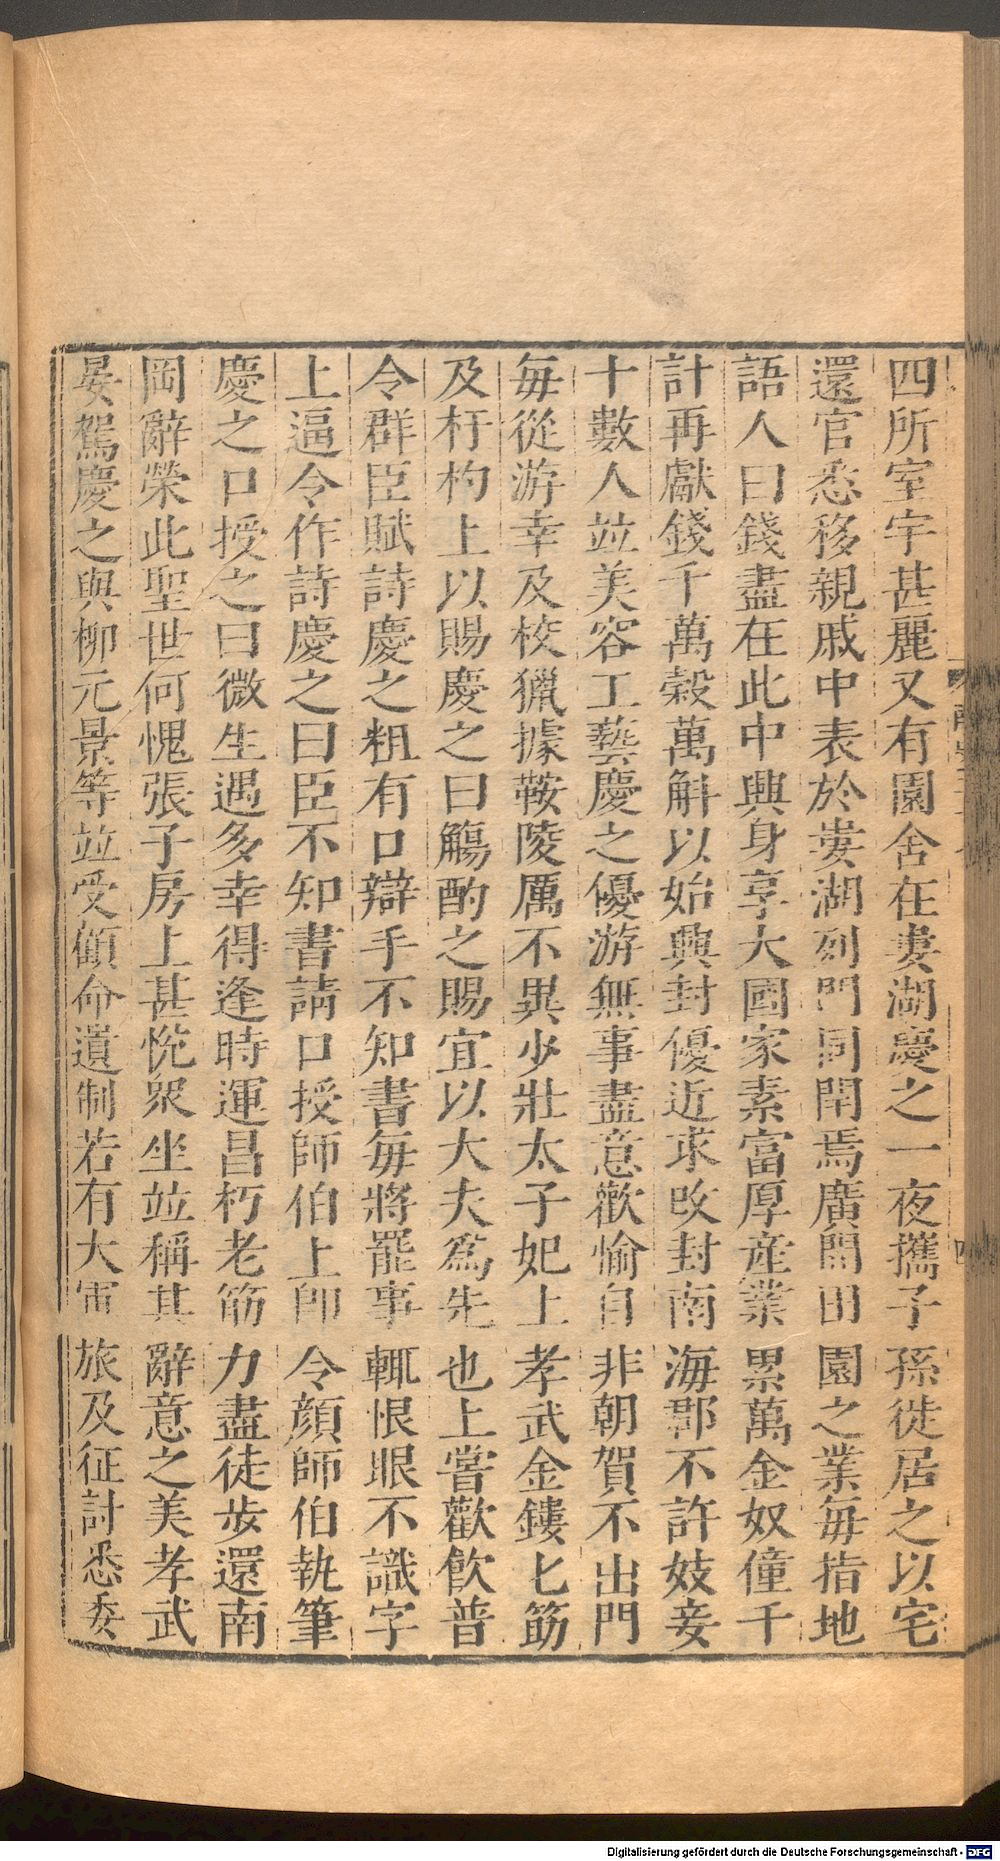 四所室宇甚麗又有園舍在婁湖慶之一夜攜子孫徙居之以宅
還官悉移親戚中表於婁湖列門同閈焉廣開田園之業每指地
語人曰錢盡在此中興身享大國家素富厚産業累萬金奴僮千
計再獻錢千萬榖萬斛以始興封優近求改封南海郡不許妓妾
十數人並美容工藝慶之優游無事盡意歡愉自非朝賀不出門
每從游幸及校獵據鞍陵厲不異少壯太子妃上孝武金鏤匕筯
及杅杓上以賜慶之曰觴酌之賜宜以大夫爲先也上嘗歡飲普
令群臣賦詩慶之粗有口辯手不知書每將罷事輒恨眼不識字
上逼令作詩慶之曰臣不知書請口授師伯上即令顔師伯執筆
慶之口授之曰微生遇多幸得逢時運昌朽老筋力盡徒步還南
岡辭榮此聖世何愧張子房上甚悅眾坐並稱其辭意之美孝武
晏駕慶之與柳元景等並受顧命遺制若有大軍旅及征討悉委
Digitalisierung gefördert durch die Deutsche Forschungsgemeinschaft - DFG